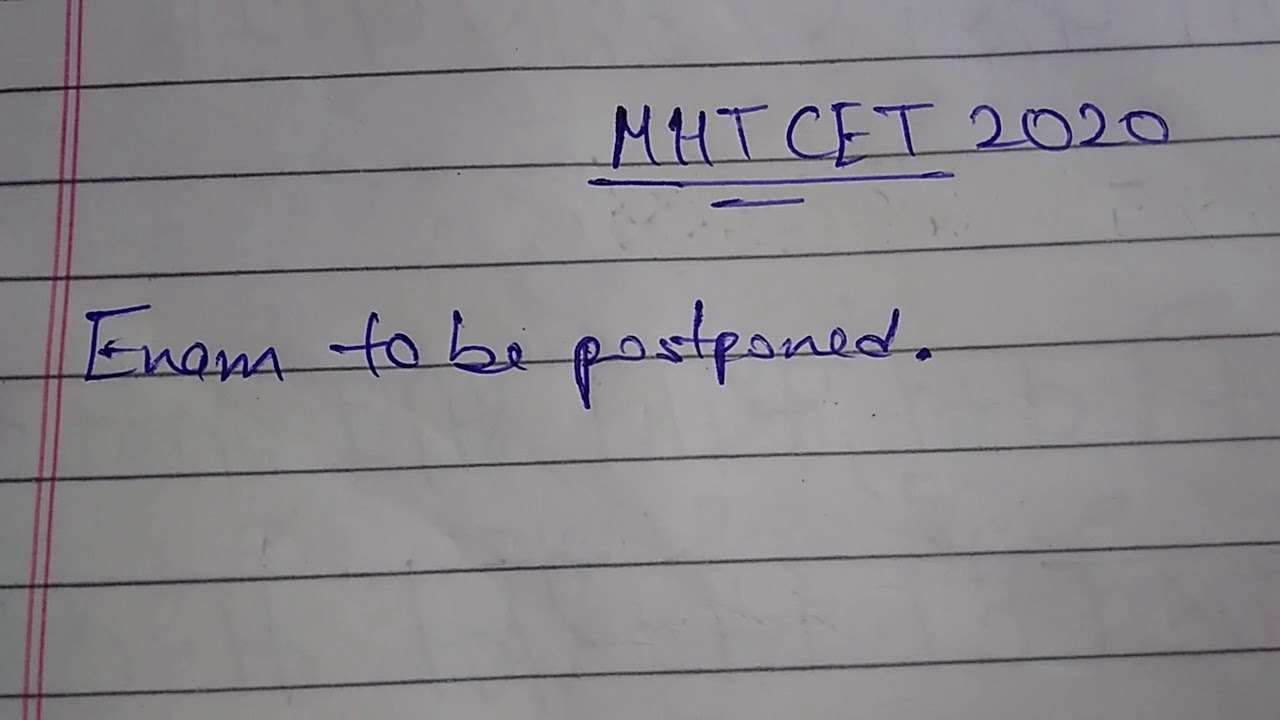 MHT CET 2020
Exam to be postponed.